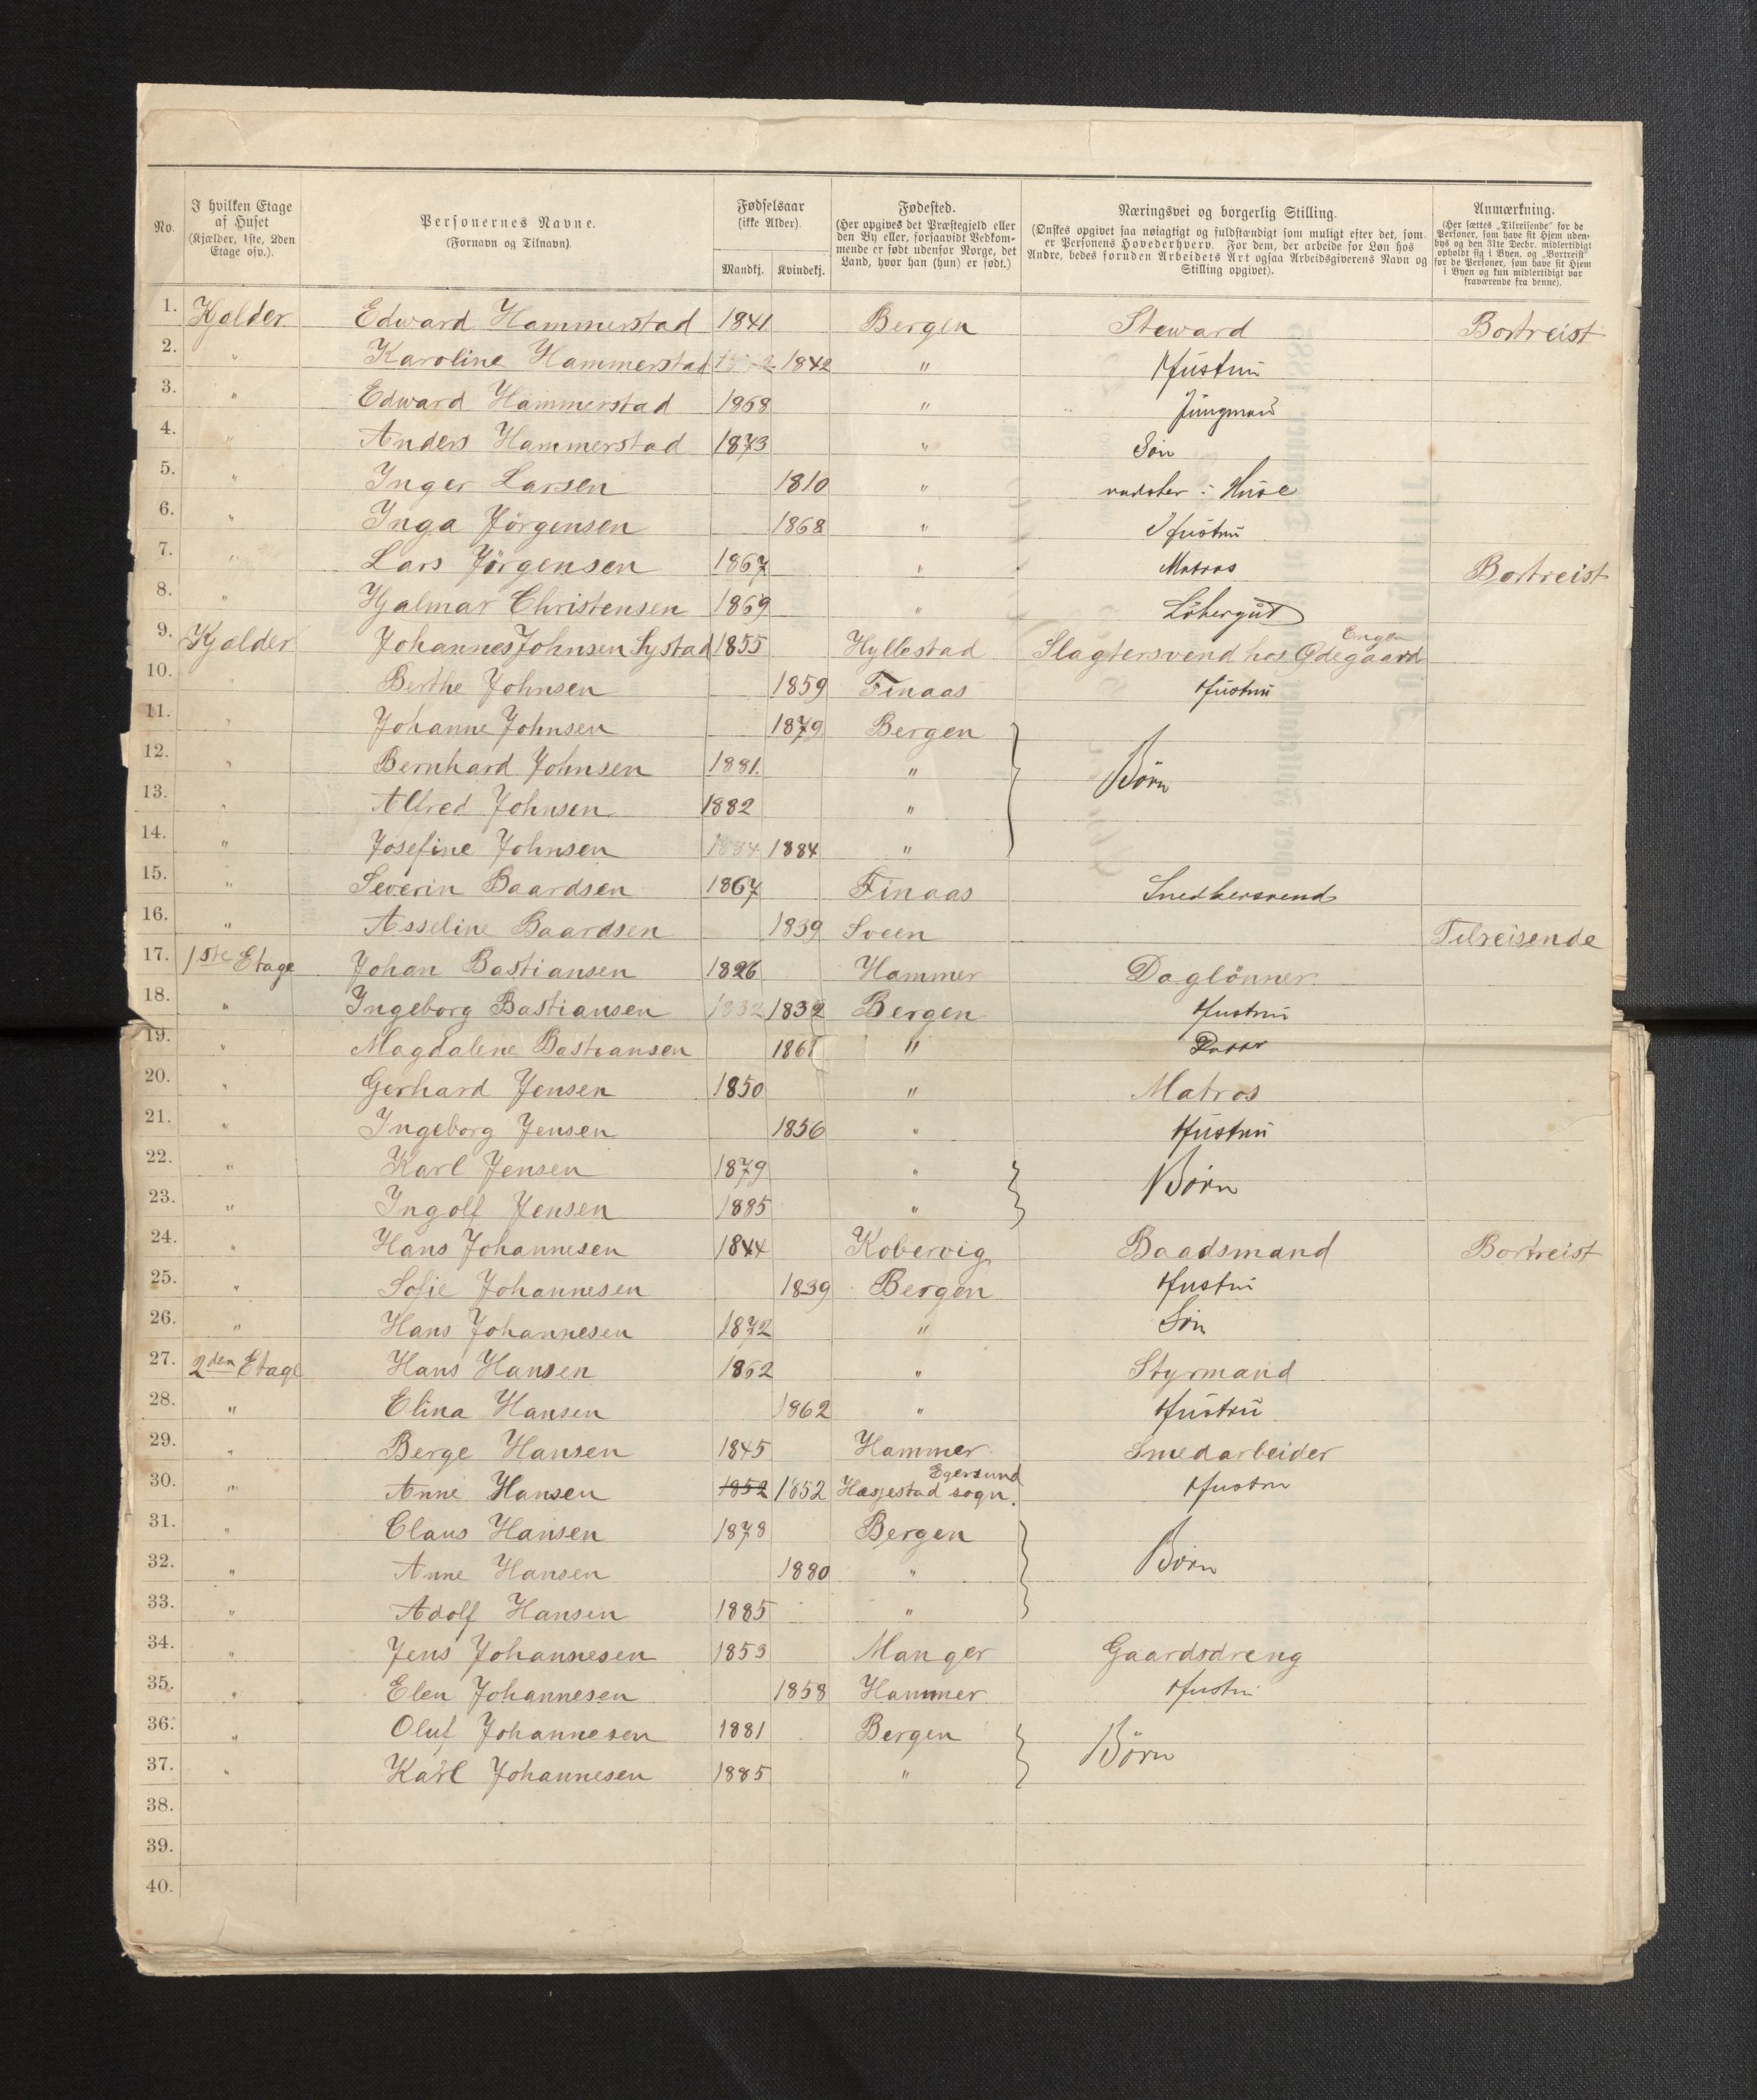 No. I hvilken Etage af Huset (Kjælder, 1ste, 2den Etage osv.). Personernes Navne. (Fornavn og Tilnavn). Fødselsaar (ikke Alder). Mandkj. Kvindekj. Fødested. (Her opgives det Præstegjeld eller den By eller, forsaavidt Vedkommende er født udenfor Norge, det Land, hvor han (hun) er født.) Næringsvei og borgerlig Stilling. (Ønskes opgivet saa nøiagtigt og fuldstændigt som muligt efter det, som er Personens Hovederhverv. For dem, der arbeide for Løn hos Andre, bedes foruden Arbeidets Art ogsaa Arbeidsgiverens Navn og Stilling opgivet). Anmærkning. (Her sættes „Tilreisende" for de Personer, som have sit Hjem udenbys og den 31te Decbr. midlertidigt opholdt sig i Byen, og „Bortreist" for de Personer, som have sit Hjem i Byen og kun midlertidigt var fraværende fra denne).
1. Kjolder Edward Hammerstad 1841 Bergen Steward Bortreist
2. " Karoline Hammerstad 1842 " Hustru
3. " Edward Hammerstad 1868 " Jungmand
4. " Anders Hammerstad 1873 " Søn
5. " Inger Larsen 1810 " Huse
6. " Inga Jörgensen 1868 " Hustru
7. " Lars Jörgensen 1867 " Matros Bortreist
8. " Hjalmar Christensen 1869 " Löbergut
9. Kjolder Johannes Johnsen Systad 1855 Hyllestad Slagtersvend hos Engen Ødegaard
10. " Berthe Johnsen 1859 Finaas Hustru
11. " Johanne Johnsen 1879 Bergen
12. " Bernhard Johnsen 1881 " Börn
13. " Alfred Johnsen 1882 "
14. " Josefine Johnsen 1884 1884 "
15. " Severin Baardsen 1867 Finaas Snedkersvend
16. " Asseline Baardsen 1839 Sveen Tilreisende
17. 1ste Etage Johan Bastiansen 1826 Hammer Daglönner
18. " Ingeborg Bastiansen 1832 1832 Bergen Hustru
19. " Magdalene Bastiansen 1861 " Datter
20. " Gerhard Jensen 1850 " Matros
21. " Ingeborg Jensen 1856 " Hustru
22. " Karl Jensen 1879 " Börn
23. " Ingolf Jensen 1885 "
24. " Hans Johannesen 1844 Kobervig Baadsmand Bortreist
25. " Sofie Johannesen 1839 Bergen Hustru
26. " Hans Johannesen 1872 " Søn
27. 2den Etage Hans Hansen 1862 " Styrmand
28. " Elina Hansen 1862 " Hustru
29. " Berge Hansen 1845 Hammer Smedarbeider
30. " Anne Hansen 1852 1852 Hæsjestad sogn. Egersund Hustru
31. " Claus Hansen 1878 Bergen
32. " Anne Hansen 1880 " Börn
33. " Adolf Hansen 1885 "
34. " Jens Johannesen 1853 Manger Gaardsdreng
35. " Elen Johannesen 1858 Hammer Hustru
36. " Oluf Johannesen 1881 Bergen Börn
37. " Karl Johannesen 1885 "
38.
39.
40.